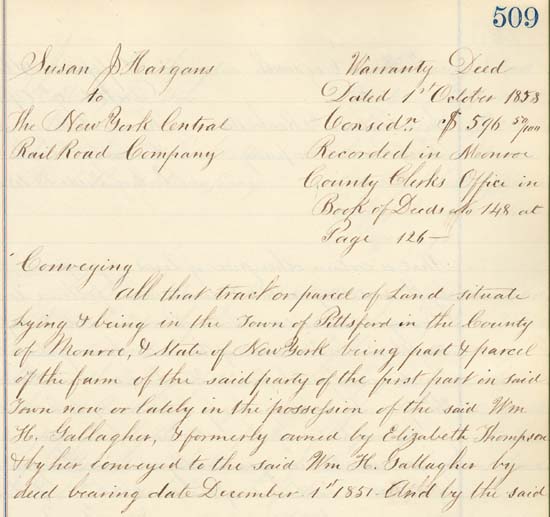 509
Susan J Hargous
to
The New York Central
Rail Road Company
Warranty Deed
Dated 1st October 1858
Considn. $596 50/100
Recorded in Monroe
County Clerks Office in
Book of Deeds No 148 at
Page 126—
Conveying
All that tract or parcel of Land situate
Lying & being in the Town of Pittsford in the County
of Monroe, & State of New York being part & parcel
of the farm of the said party of the first part in said
Town now or lately in the possession of the said Wm
H. Gallagher, & formerly owned by Elizabeth Thompson
& by her conveyed to the said Wm H. Gallagher by
deed bearing date December 1st 1851. And by the said